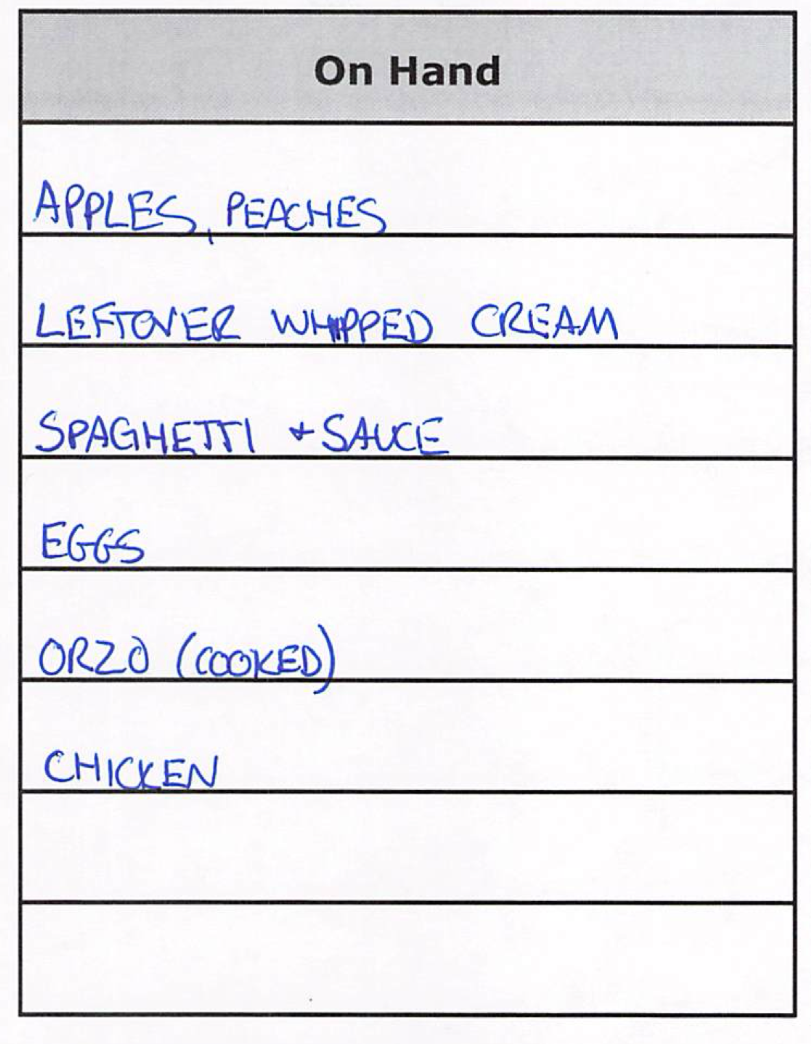 On Hand
APPLES, PEACHES
LEFTOVER WHIPPED CREAM
SPAGHETTI + SAUCE
EGGS
ORZO (COOKED)
CHICKEN